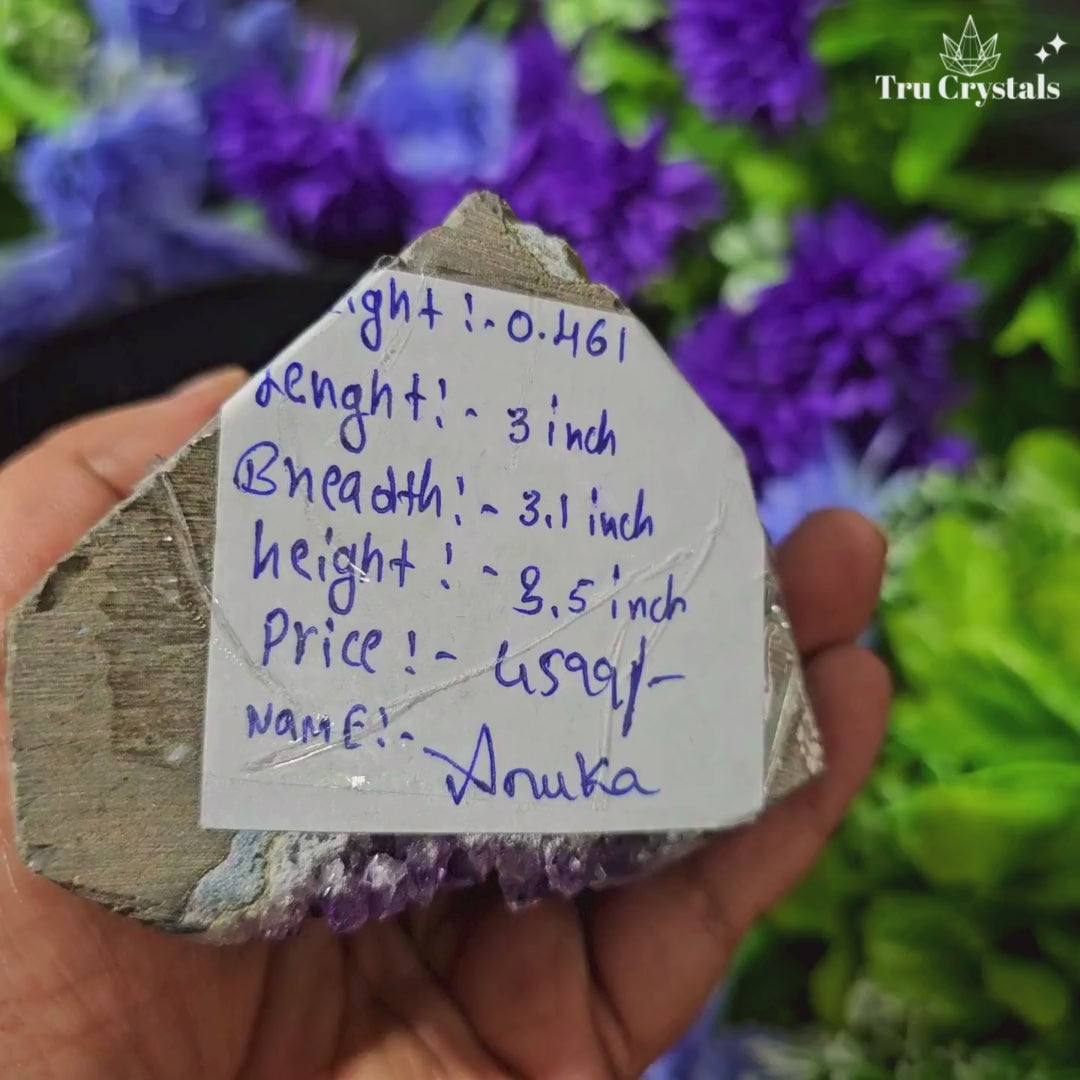 Tru Crystals
ight :- 0.461
Lenght :- 3 inch
Breadth :- 3.1 inch
height :- 3.5 inch
Price :- 4599/-
NAME :- Anuka